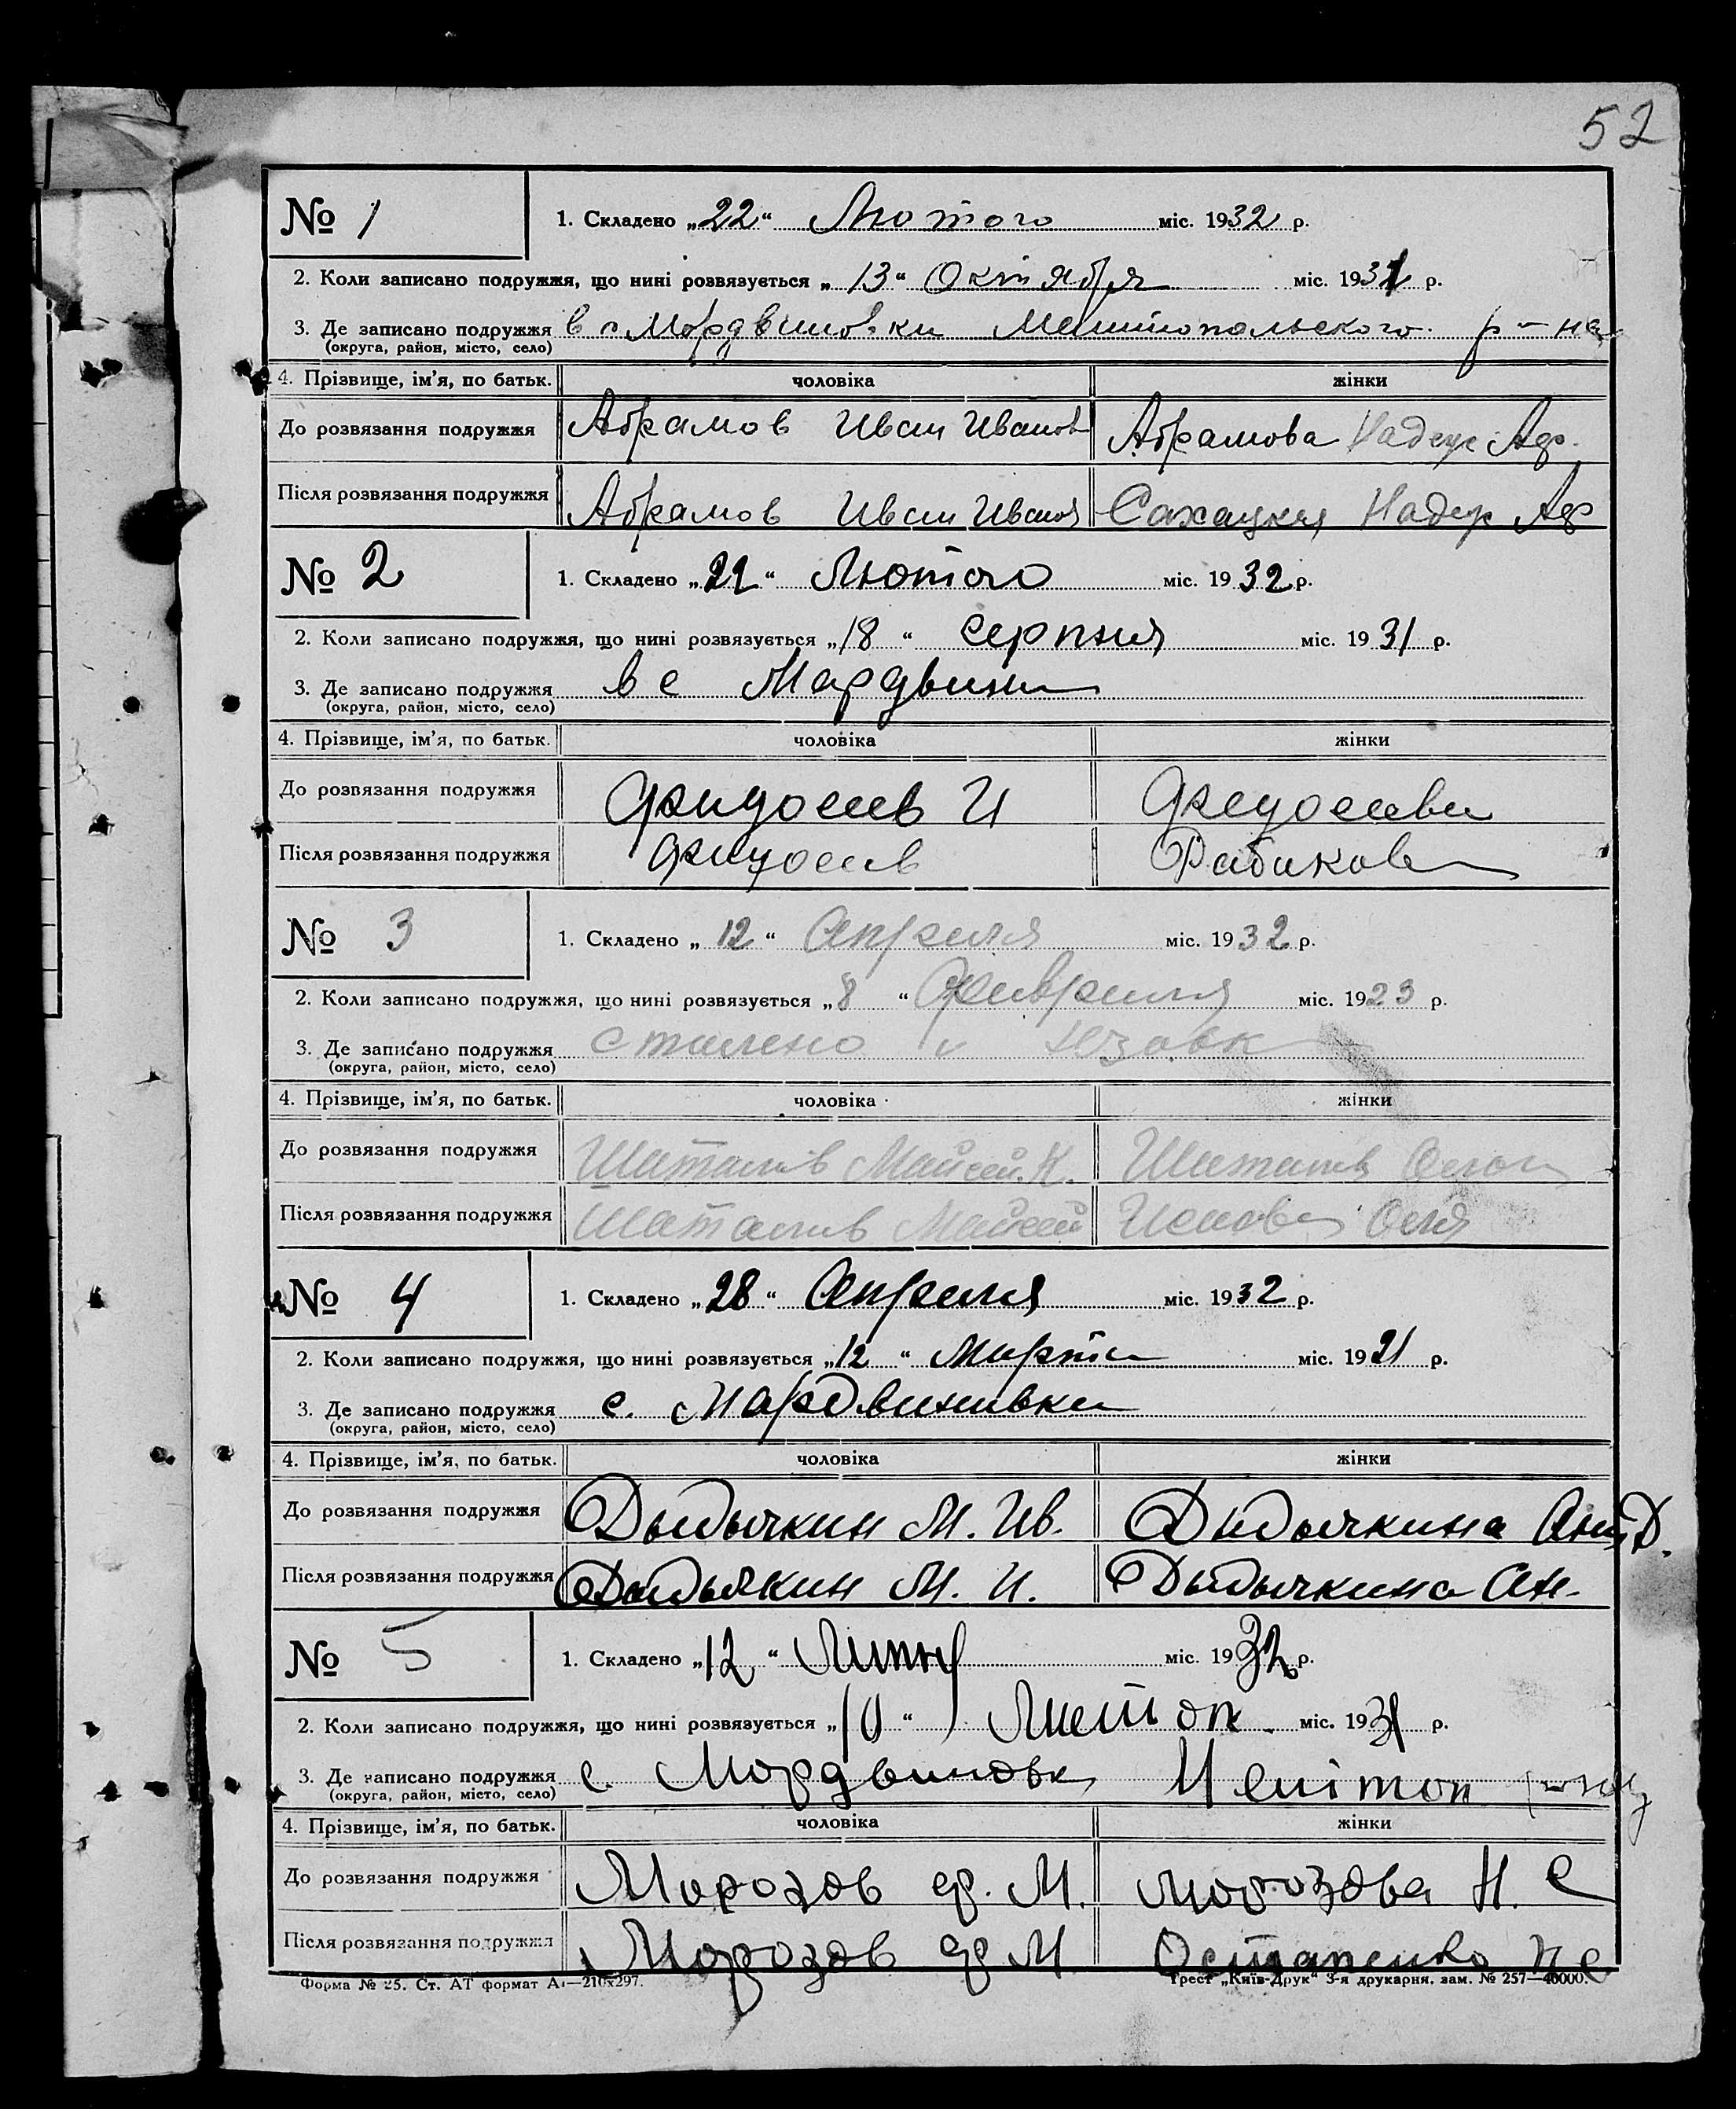 52
№ 1
1. Складено „22“ Лютого міс. 1932 р.
2. Коли записано подружжя, що нині розвязується „13“ Октября міс. 1931 р.
3. Де записано подружжя в с Мордвиновки Мелитопольского р-на
(округа, район, місто, село)
4. Прізвище, ім'я, по батьк. чоловіка жінки
До розвязання подружжя Абрамов Иван Иванов Абрамова Надеж Аф.
Після розвязання подружжя Абрамов Иван Иванов Сахацкая Надеж Аф
№ 2
1. Складено „22“ Лютого міс. 1932 р.
2. Коли записано подружжя, що нині розвязується „18“ серпня міс. 1931 р.
3. Де записано подружжя в с Мардвин
(округа, район, місто, село)
4. Прізвище, ім'я, по батьк. чоловіка жінки
До розвязання подружжя И
Після розвязання подружжя
№ 3
1. Складено „12“ Апреля міс. 1932 р.
2. Коли записано подружжя, що нині розвязується „8“ Февраля міс. 1923 р.
3. Де записано подружжя
(округа, район, місто, село)
4. Прізвище, ім'я, по батьк. чоловіка жінки
До розвязання подружжя Шаталов К.
Після розвязання подружжя Оля
№ 4
1. Складено „28“ Апреля міс. 1932 р.
2. Коли записано подружжя, що нині розвязується „12“ Марта міс. 1921 р.
3. Де записано подружжя с. Мардвинивка
(округа, район, місто, село)
4. Прізвище, ім'я, по батьк. чоловіка жінки
До розвязання подружжя Дыдычкин М. Ив. Дыдычкина Ан Д.
Після розвязання подружжя Дыдычкин М. И. Дыдычкина Ан.
№ 5
1. Складено „12“ Липня міс. 1932 р.
2. Коли записано подружжя, що нині розвязується „10“ Листоп міс. 1931 р.
3. Де записано подружжя с. Мордвиновк Мелітоп р-ну
(округа, район, місто, село)
4. Прізвище, ім'я, по батьк. чоловіка жінки
До розвязання подружжя Морозов ф. М. Морозова Н. С
Після розвязання подружжя Морозов ф М Остапенко Н С
Форма № 25. Ст. АТ формат А₄—210х297. Трест „Київ-Друк“ 3-я друкарня, зам. № 257—40000.